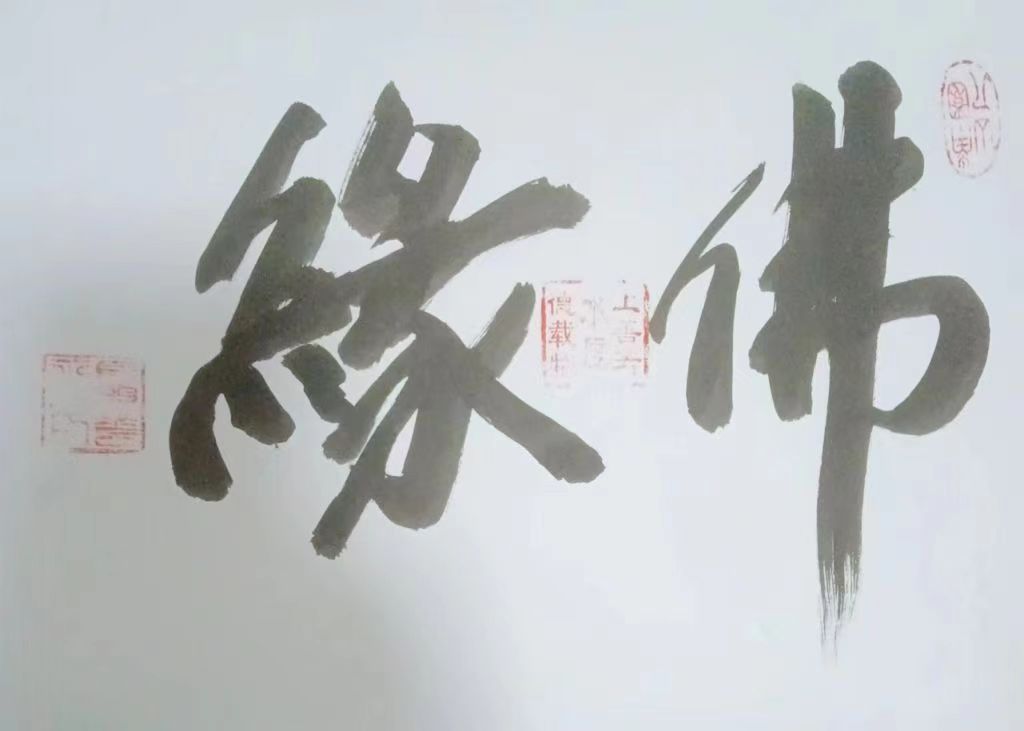 佛緣
上善若水厚德载物